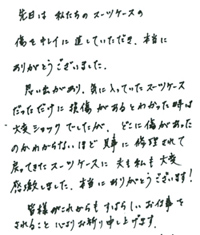 先日は 私たちの スーツケースの
傷をキレイに 直していただき、本当に
ありがとうございました。
思い出があり、気に入っていたスーツケース
だっただけに 損傷 があるとわかった時は
大変ショックでしたが、どこに傷があった
のかわからないほど 見事に 修理されて
戻ってきたスーツケースに 夫も私も 大変
感激しました。本当にありがとうございます!
皆様がこれからも すばらしいお仕事を
されること 心よりお祈り申し上げます。